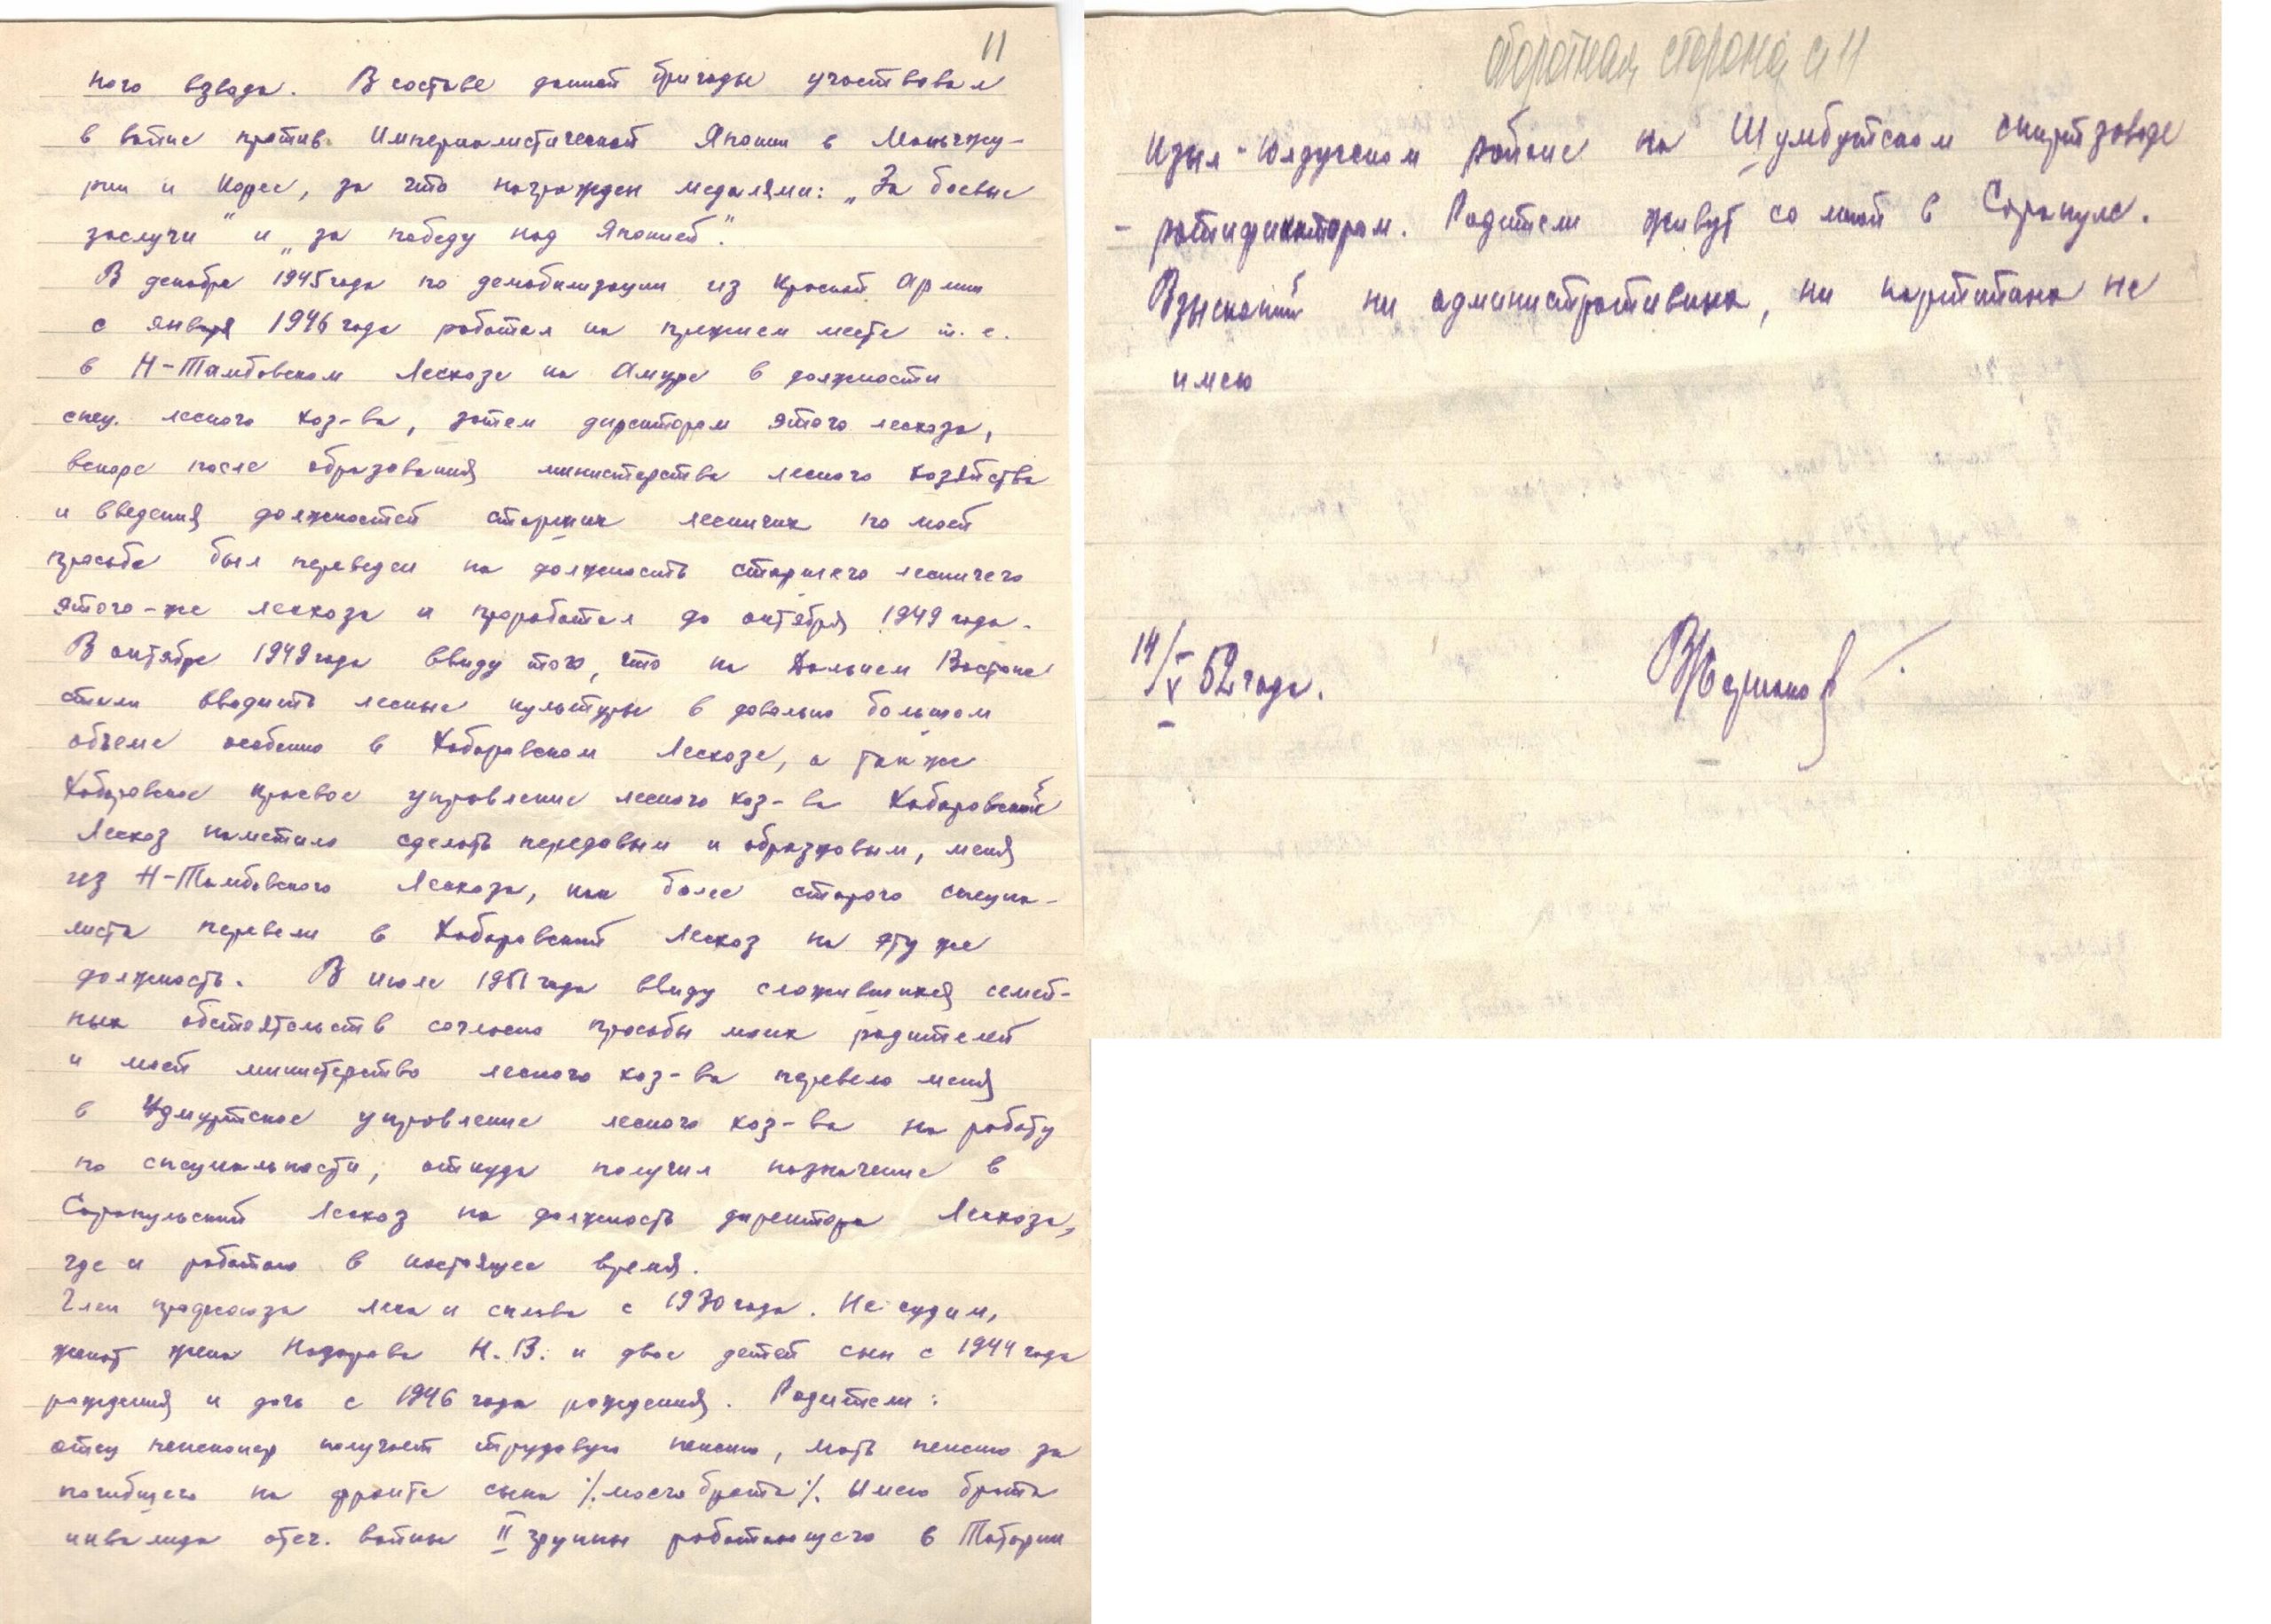 11
ного взвода. В составе данной бригады участвовал
в войне против Империалистической Японии в Маньчжу-
рии и Корее, за что награжден медалями: „За боевые
заслуги" и „за победу над Японией".
В декабре 1945 года по демобилизации из Красной Армии
с января 1946 года работал на прежнем месте т. е.
в Н-Тамбовском Лесхозе на Амуре в должности
спец. лесного хоз-ва, затем директором этого лесхоза,
вскоре после образования министерства лесного хозяйства
и введения должностей старших лесничих по моей
просьбе был переведен на должность старшего лесничего
этого-же лесхоза и проработал до октября 1949 года.
В октябре 1949 года ввиду того, что на Дальнем Востоке
стали вводить лесные культуры в довольно большом
объеме особенно в Хабаровском Лесхозе, а также
Хабаровское краевое управление лесного хоз-ва Хабаровский
Лесхоз наметило сделать передовым и образцовым, меня
из Н-Тамбовского Лесхоза, как более старого специа-
листа перевели в Хабаровский Лесхоз на эту же
должность. В июле 1951 года ввиду сложившихся семей-
ных обстоятельств согласно просьбы моих родителей
и моей министерство лесного хоз-ва перевело меня
в Удмуртское управление лесного хоз-ва на работу
по специальности, откуда получил назначение в
Сарапульский Лесхоз на должность директора Лесхоза,
где и работаю в настоящее время.
Член профсоюза леса и сплава с 1930 года. Не судим,
женат жена Назарова Н. В. и двое детей сын с 1944 года
рождения и дочь с 1946 года рождения. Родители:
отец пенсионер получает трудовую пенсию, мать пенсию за
погибшего на фронте сына ·/. моего брата ·/. Имею брата
инвалида отеч. войны II группы работающего в Татарии
оборотная сторона л 11
Кзыл-Юлдузском районе на Шумбутском спиртзаводе
- ратификатором. Родители живут со мной в Сарапуле.
Взысканий ни административных, ни партийных не
имею
14/V 52 года.